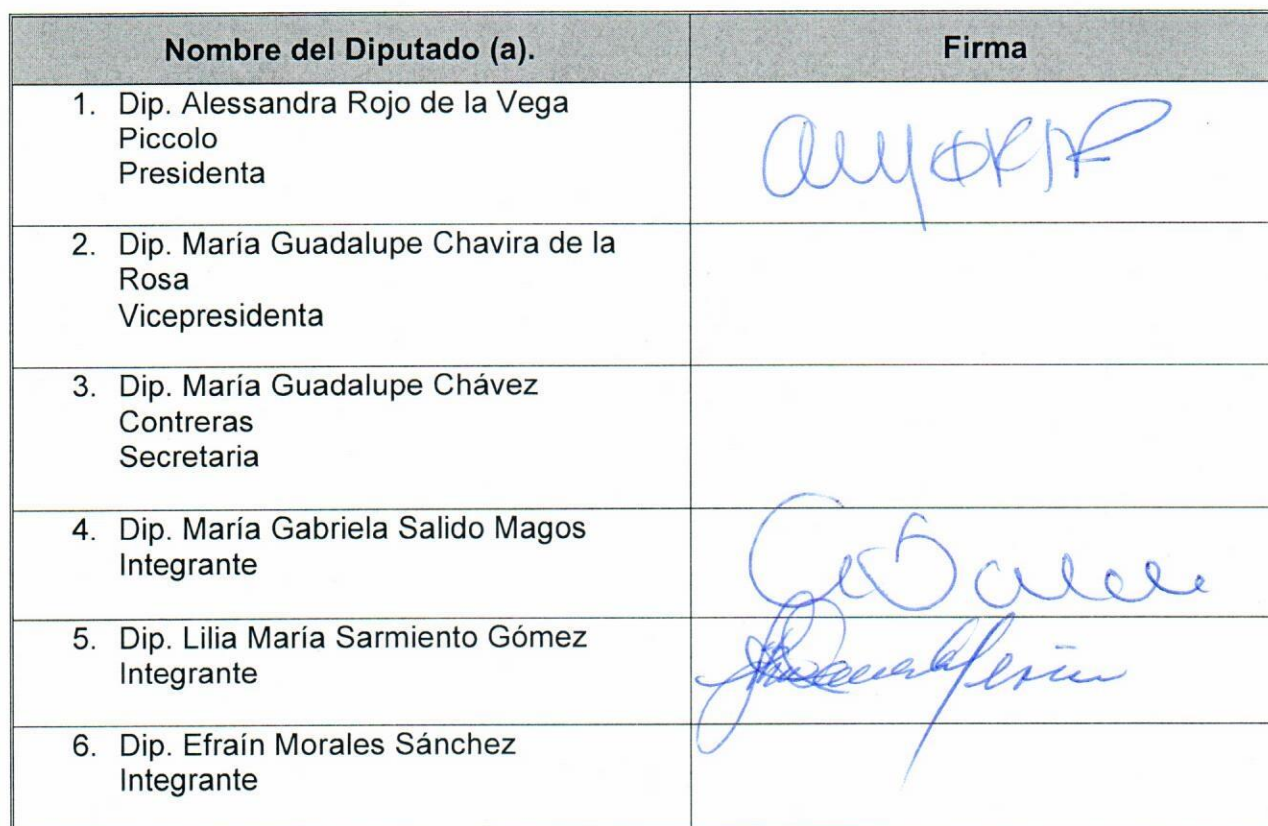 Nombre del Diputado (a).
Firma
1. Dip. Alessandra Rojo de la Vega
Piccolo
Presidenta
2. Dip. María Guadalupe Chavira de la
Rosa
Vicepresidenta
3. Dip. María Guadalupe Chávez
Contreras
Secretaria
4. Dip. María Gabriela Salido Magos
Integrante
5. Dip. Lilia María Sarmiento Gómez
Integrante
6. Dip. Efraín Morales Sánchez
Integrante